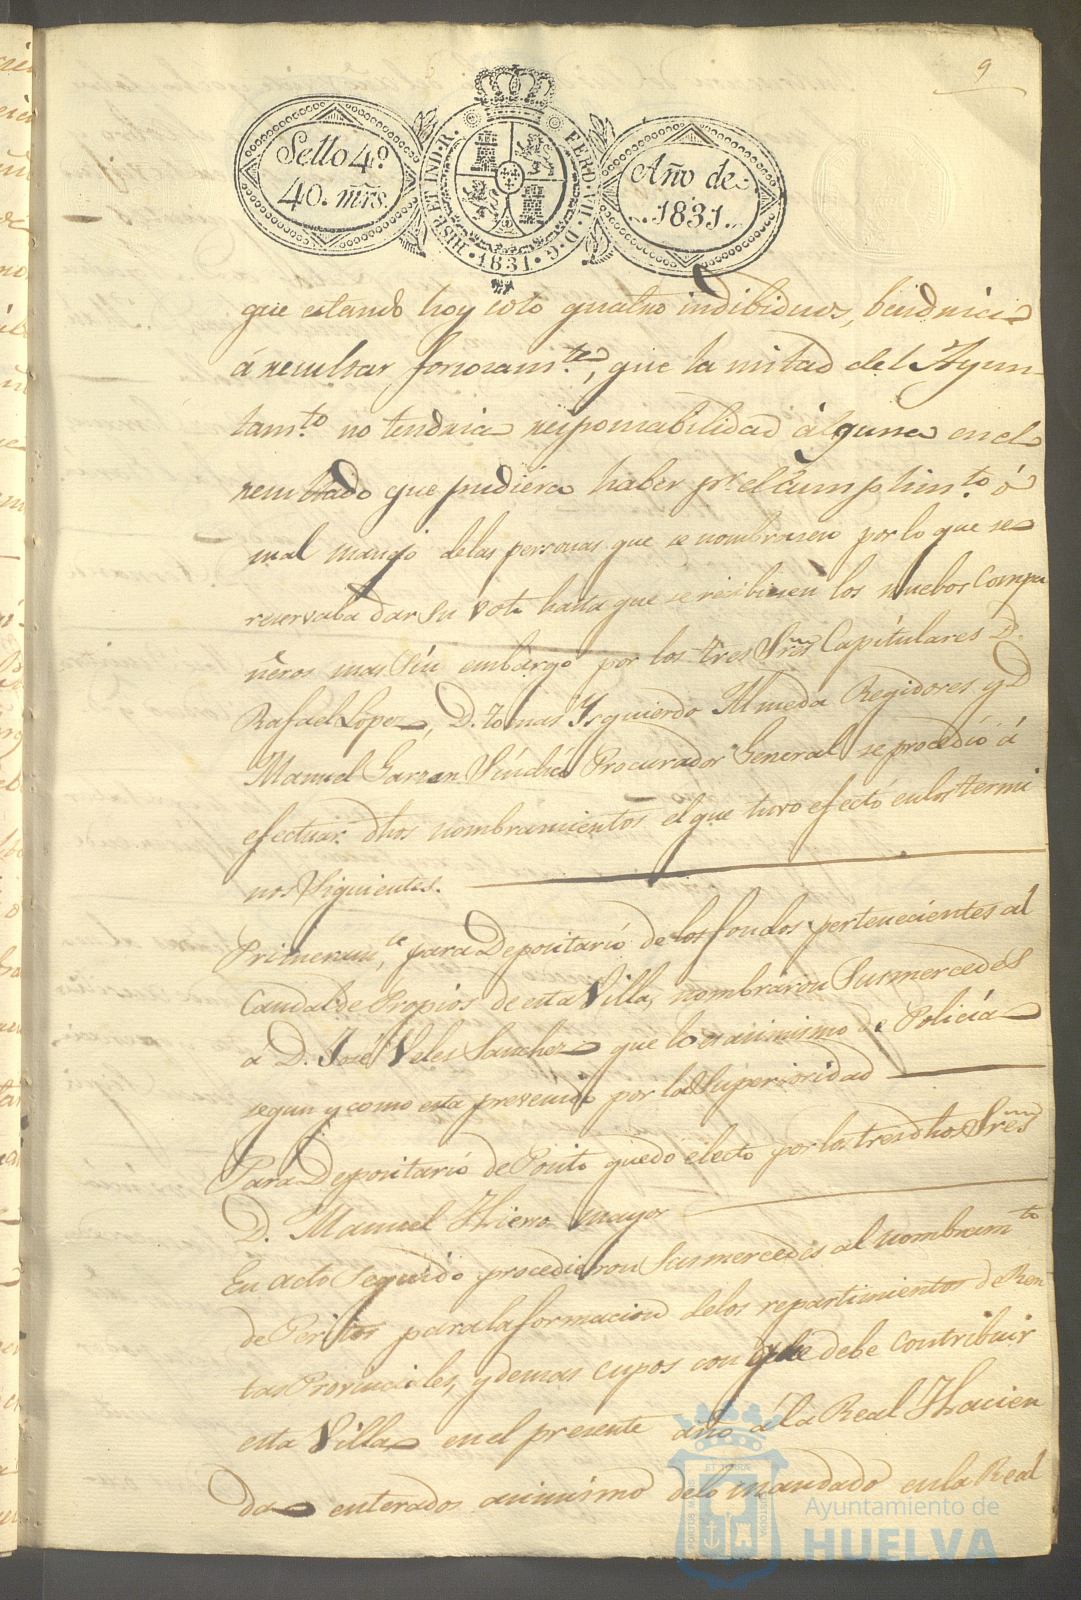 9
Sello 4º
40. mrs.
HISP. ET IND. R. FERD. VII. D. G. 1831.
Año de
1831.
que estando hoy solo quatro indibiduos, bendria
á resultar forosamte, que la mitad del Ayun-
tamto no tendria responsabilidad alguna en el
resultado que pudiera haber pr el cumplimto ó
mal manejo de las personas que se nombrasen por lo que se
reservaba dar su voto hasta que se recibiesen los nuebos compa
ñeros mas sin embargo por los tres Sres Capitulares D.
Rafael Lopez, D. Tomas Ysquierdo Almeda Regidores y D
Manuel Garzon Síndico Procurador General se procedió á
efectuar dhos nombramientos el que tuvo efecto en los termi
nos siguientes.
Primeramte, para Depositario de los fondos pertenecientes al
Caudal de Propios de esta Villa, nombraron Susmercedes
a D. José Veles Sanchez que lo es asimismo de Policía
segun y como esta prevenido por la Superioridad
Para Depositario de Posito quedó electo por los tres dhos Sres
D. Manuel Hierro mayor
En acto seguido procedieron Susmercedes al nombramto
de Peritos para la formacion de los repartimientos de Ren
tas Provinciales, y demas cupos con que debe contribuir
esta Villa en el presente año á la Real Hacien
da enterados asimismo de lo mandado en la Real
Ayuntamiento de
HUELVA